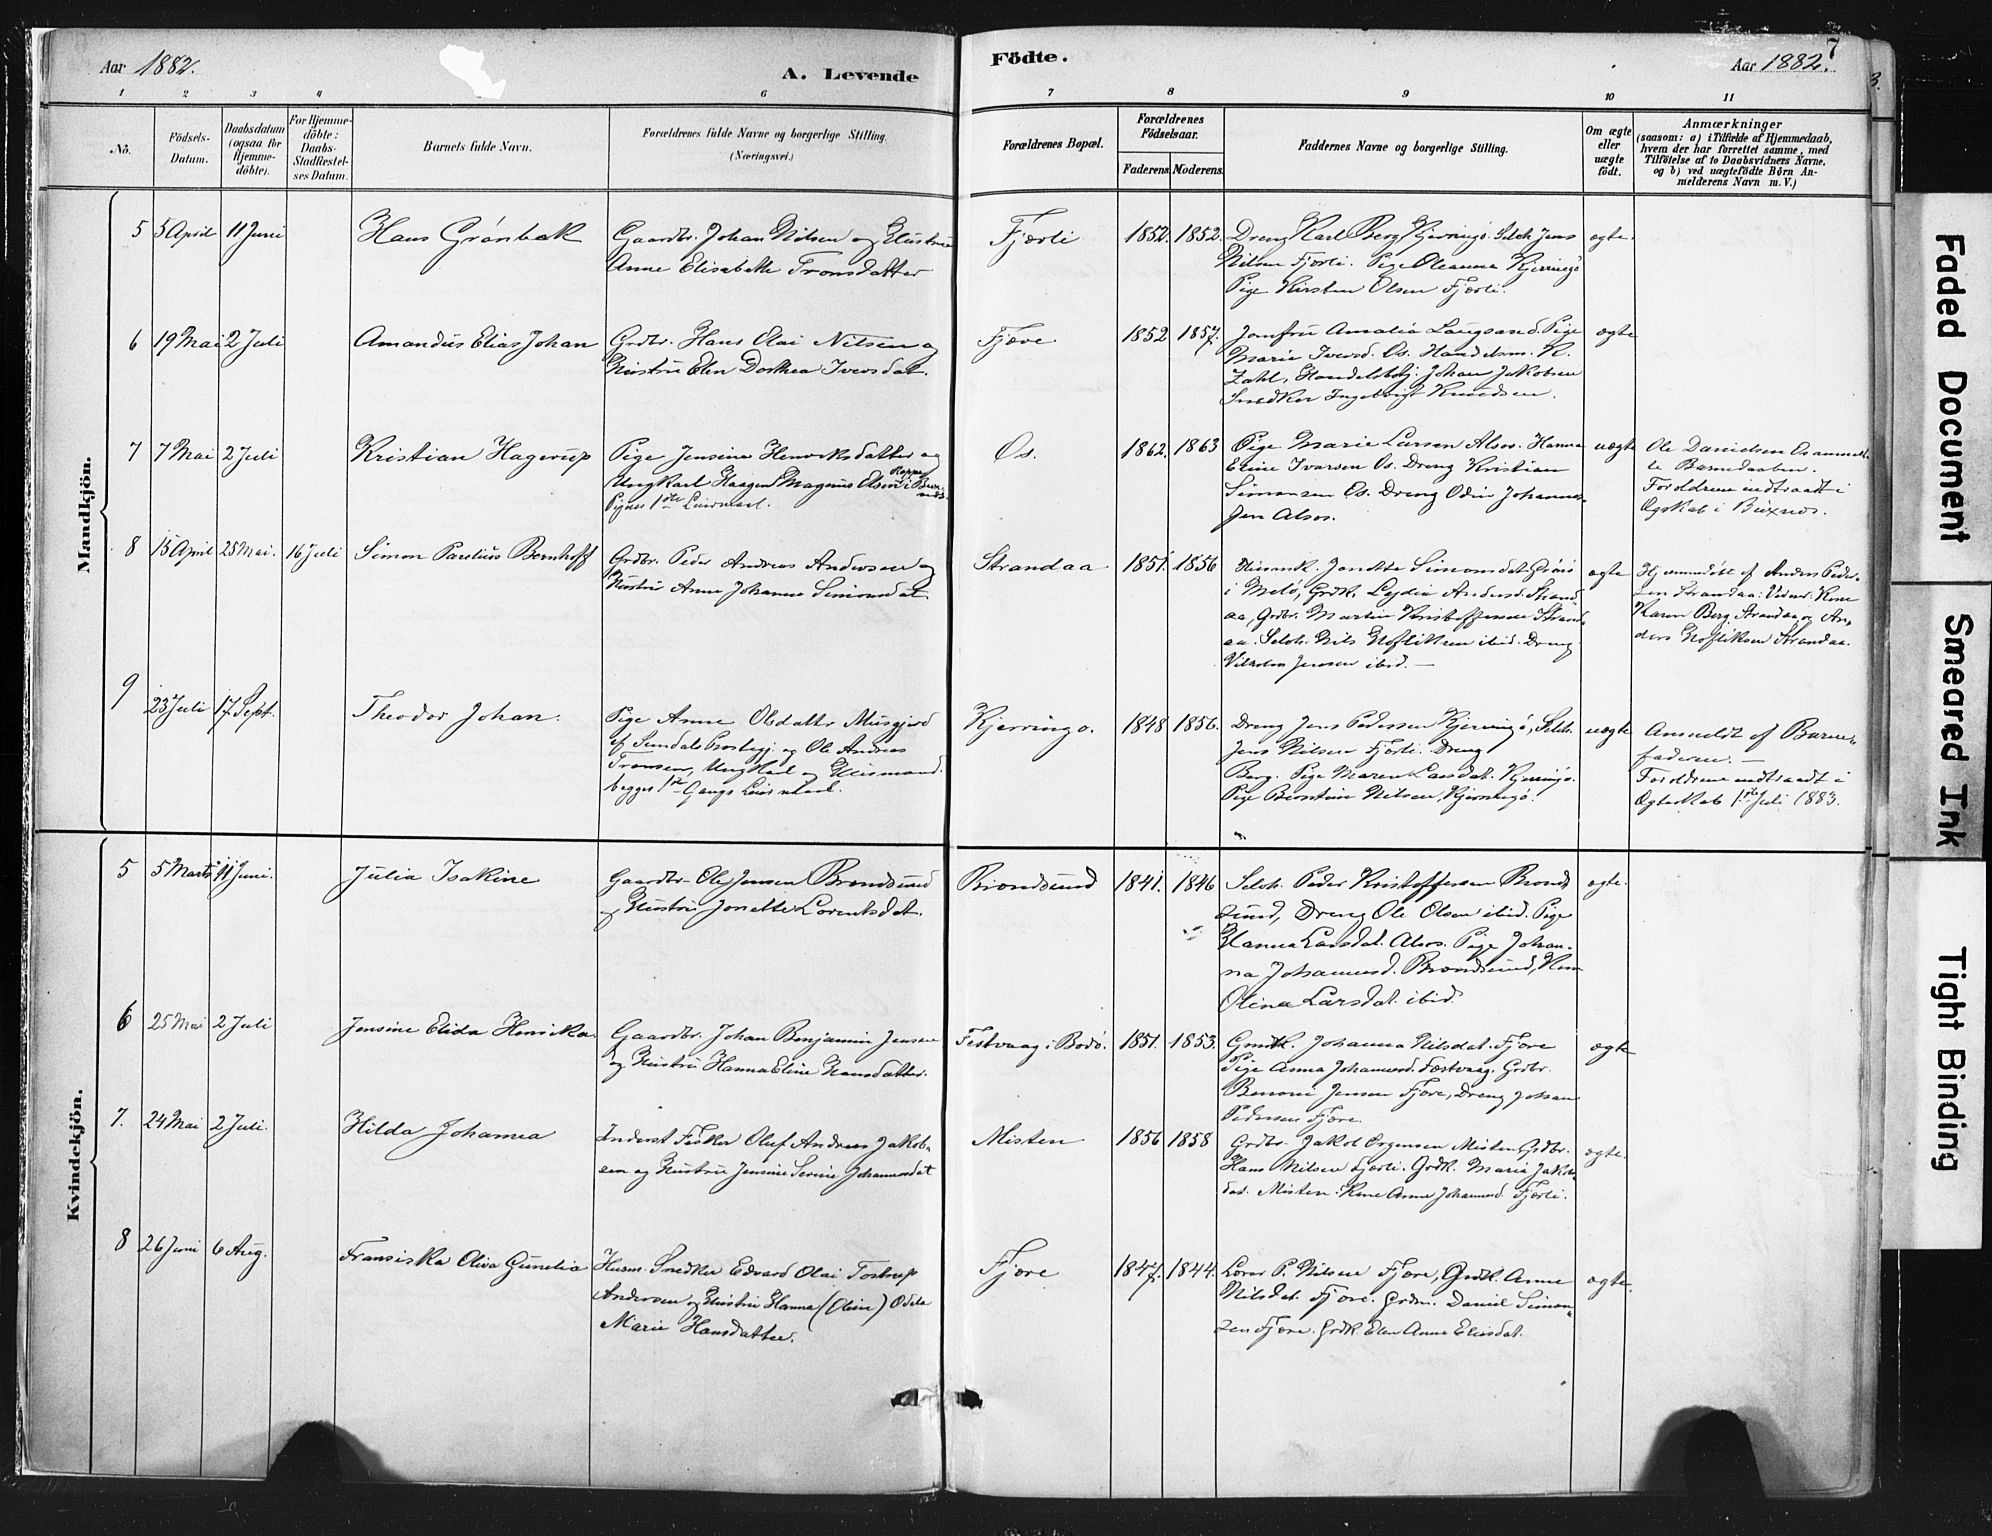 Aar 1882.
A. Levende
Födte.
7
Aar 1882.
1 2 3 4 6 7 8 9 10 11
No.
Födsels-
Datum.
Daabsdatum
(ogsaa for
Hjemme-
döbte).
For Hjemme-
döbte:
Daabs-
Stadfæstel-
ses Datum.
Barnets fulde Navn.
Forældrenes fulde Navne og borgerlige Stilling.
(Næringsvei.)
Forældrenes Bopæl.
Forældrenes
Födselsaar.
Faderens Moderens.
Faddernes Navne og borgerlige Stilling.
Om ægte
eller
uægte
födt.
Anmærkninger
(saasom: a) i Tilfælde af Hjemmedaab,
hvem der har forrettet samme, med
Tilföielse af to Daabsvidners Navne,
og b) ved uægtefödte Börn An-
melderens Navn m. V.)
Mandkjön.
5 5 April 11 Juni
Hans Grönbæk
Gaardbr. Johan Nilsen og Hustru
Anne Elisabeth Tronsdatter
Fjærli
1852. 1852.
Dreng Karl Berg Kjerringö. Selvh. Jens
Nilsen Fjærli. Pige Oleanna Kjerringö
Pige Kirsten Olsen Fjærli.
ægte.
6 19 Mai 2 Juli
Amandus Elias Johan
Grdbr. Hans Olai Nilsen og
Hustru Elen Dorthea Iversdat.
Fjære
1852 1857.
Jomfru Amalia Laugsand. Pige
Marie Iversd. Os. Handelsm. K.
Zahl, Handelsbetj. Johan Jakobsen
Snedker Ingebrigt Knudsen.
ægte
7 7 Mai 2 Juli
Kristian Hagerup
Pige Jensine Henriksdatter og
Ungkarl Haagen Magnus Olsen i Bux-
Piges 1ste Leiermaal.
Os.
1862. 1863
Pige Marie Larsen Alsos. Hanna
Eline Ivarsen Os. Dreng Kristian
Simonsen Os. Dreng Odin Johanne-
sen Alsos.
uægte
Ole Danielsen Os anmeld-
te Barnedaaben.
Forældrene indtraadt i
Ægteskab i Buxnæs.
8 15 April 25 Mai. 16 Juli
Simon Parelius Bernhoff
Grdbr. Peder Andreas Andersen og
Hustru Anne Johanna Simonsdat.
Strandaa
1851. 1856
Simonsdat.
i Melö, Grdk. Lydia Andersd. Strand-
aa, Grdbr. Martin Kristoffersen Strand-
aa. Selvh. Nils ibid. Dreng
Vilhelm Jensen ibid. —
ægte
Hjemmedöbt af Anders Peder-
sen Strandaa. Vidner: Kone
Karen Berg. Strandaa og An-
ders Strandaa.
9 23 Juli 17 Sept.
Theodor Johan.
Pige Anne Olsdatter Musgjerd
af Sundals Præstegj. og Ole Andreas
Tronsen, Ungkarl og Huusmand.
begges 1ste Gangs Leiermaal.
Kjerringö.
1848 1856.
Dreng Jens Pedersen Kjerringö, Selvh.
Jens Nilsen Fjærli. Dreng
Berg. Pige Maren Larsdat. Kjerringö.
Pige Berntine Nilsen, Kjerringö.
uægte
Anmeldt af Barne-
faderen. —
Forældrene indtraadt i
Ægteskab 1ste Juli 1883.
Kvindekjön.
5 5 Marts 11 Juni.
Julia Isakine
Gaardbr. Ole Jensen Brændsund
og Hustru Jonette Lorentsdat.
Brændsund
1841. 1846
Selvh. Peder Kristoffersen Brænd-
sund, Dreng Ole Olsen ibid. Pige
Hanna Larsdat. Alsos. Pige Johan-
na Johannesd. Brændsund, Kone
Olina Larsdat. ibid.
ægte.
6 25 Mai 2 Juli
Jensine Elida Henrika.
Gaardbr. Johan Benjamin Jensen
og Hustru Hanna Eline Hansdatter.
Festvaag i Bodö.
1851. 1853.
Johanna Nilsdat. Fjære
Pige Anna Johannesd. Festvaag. Grdbr.
Benoni Jensen Fjære, Dreng Johan
Pedersen Fjære.
ægte
7. 24 Mai 2 Juli.
Hilda Johanna
Inderst Fisker Oluf Andreas Jakob-
sen og Hustru Jensine Serine Johannesdat
Misten
1856 1858
Grdbr. Jakob Örgensen Misten Grdbr.
Hans Nilsen Fjærli. Grdk. Maria Jakobs-
dat. Misten. Kone Anne Johannesd. Fjærli.
ægte.
8 26 Juni 6 Aug.
Fransiska Oliva Gunelia
Husm. Snedker Edvard Olai Tostrup
Andersen og Hustru Hanna (Oline) Odela
Marie Hansdatter.
Fjære
1847. 1844.
Lærer P. Nilsen Fjære, Grdk. Anne
Nilsdat. Fjære. Grdm. Daniel Simon-
sen Fjære. Grdk. Elen Anna Eliasdat.
ægte.
3.
Faded Document
Smeared Ink
Tight Binding